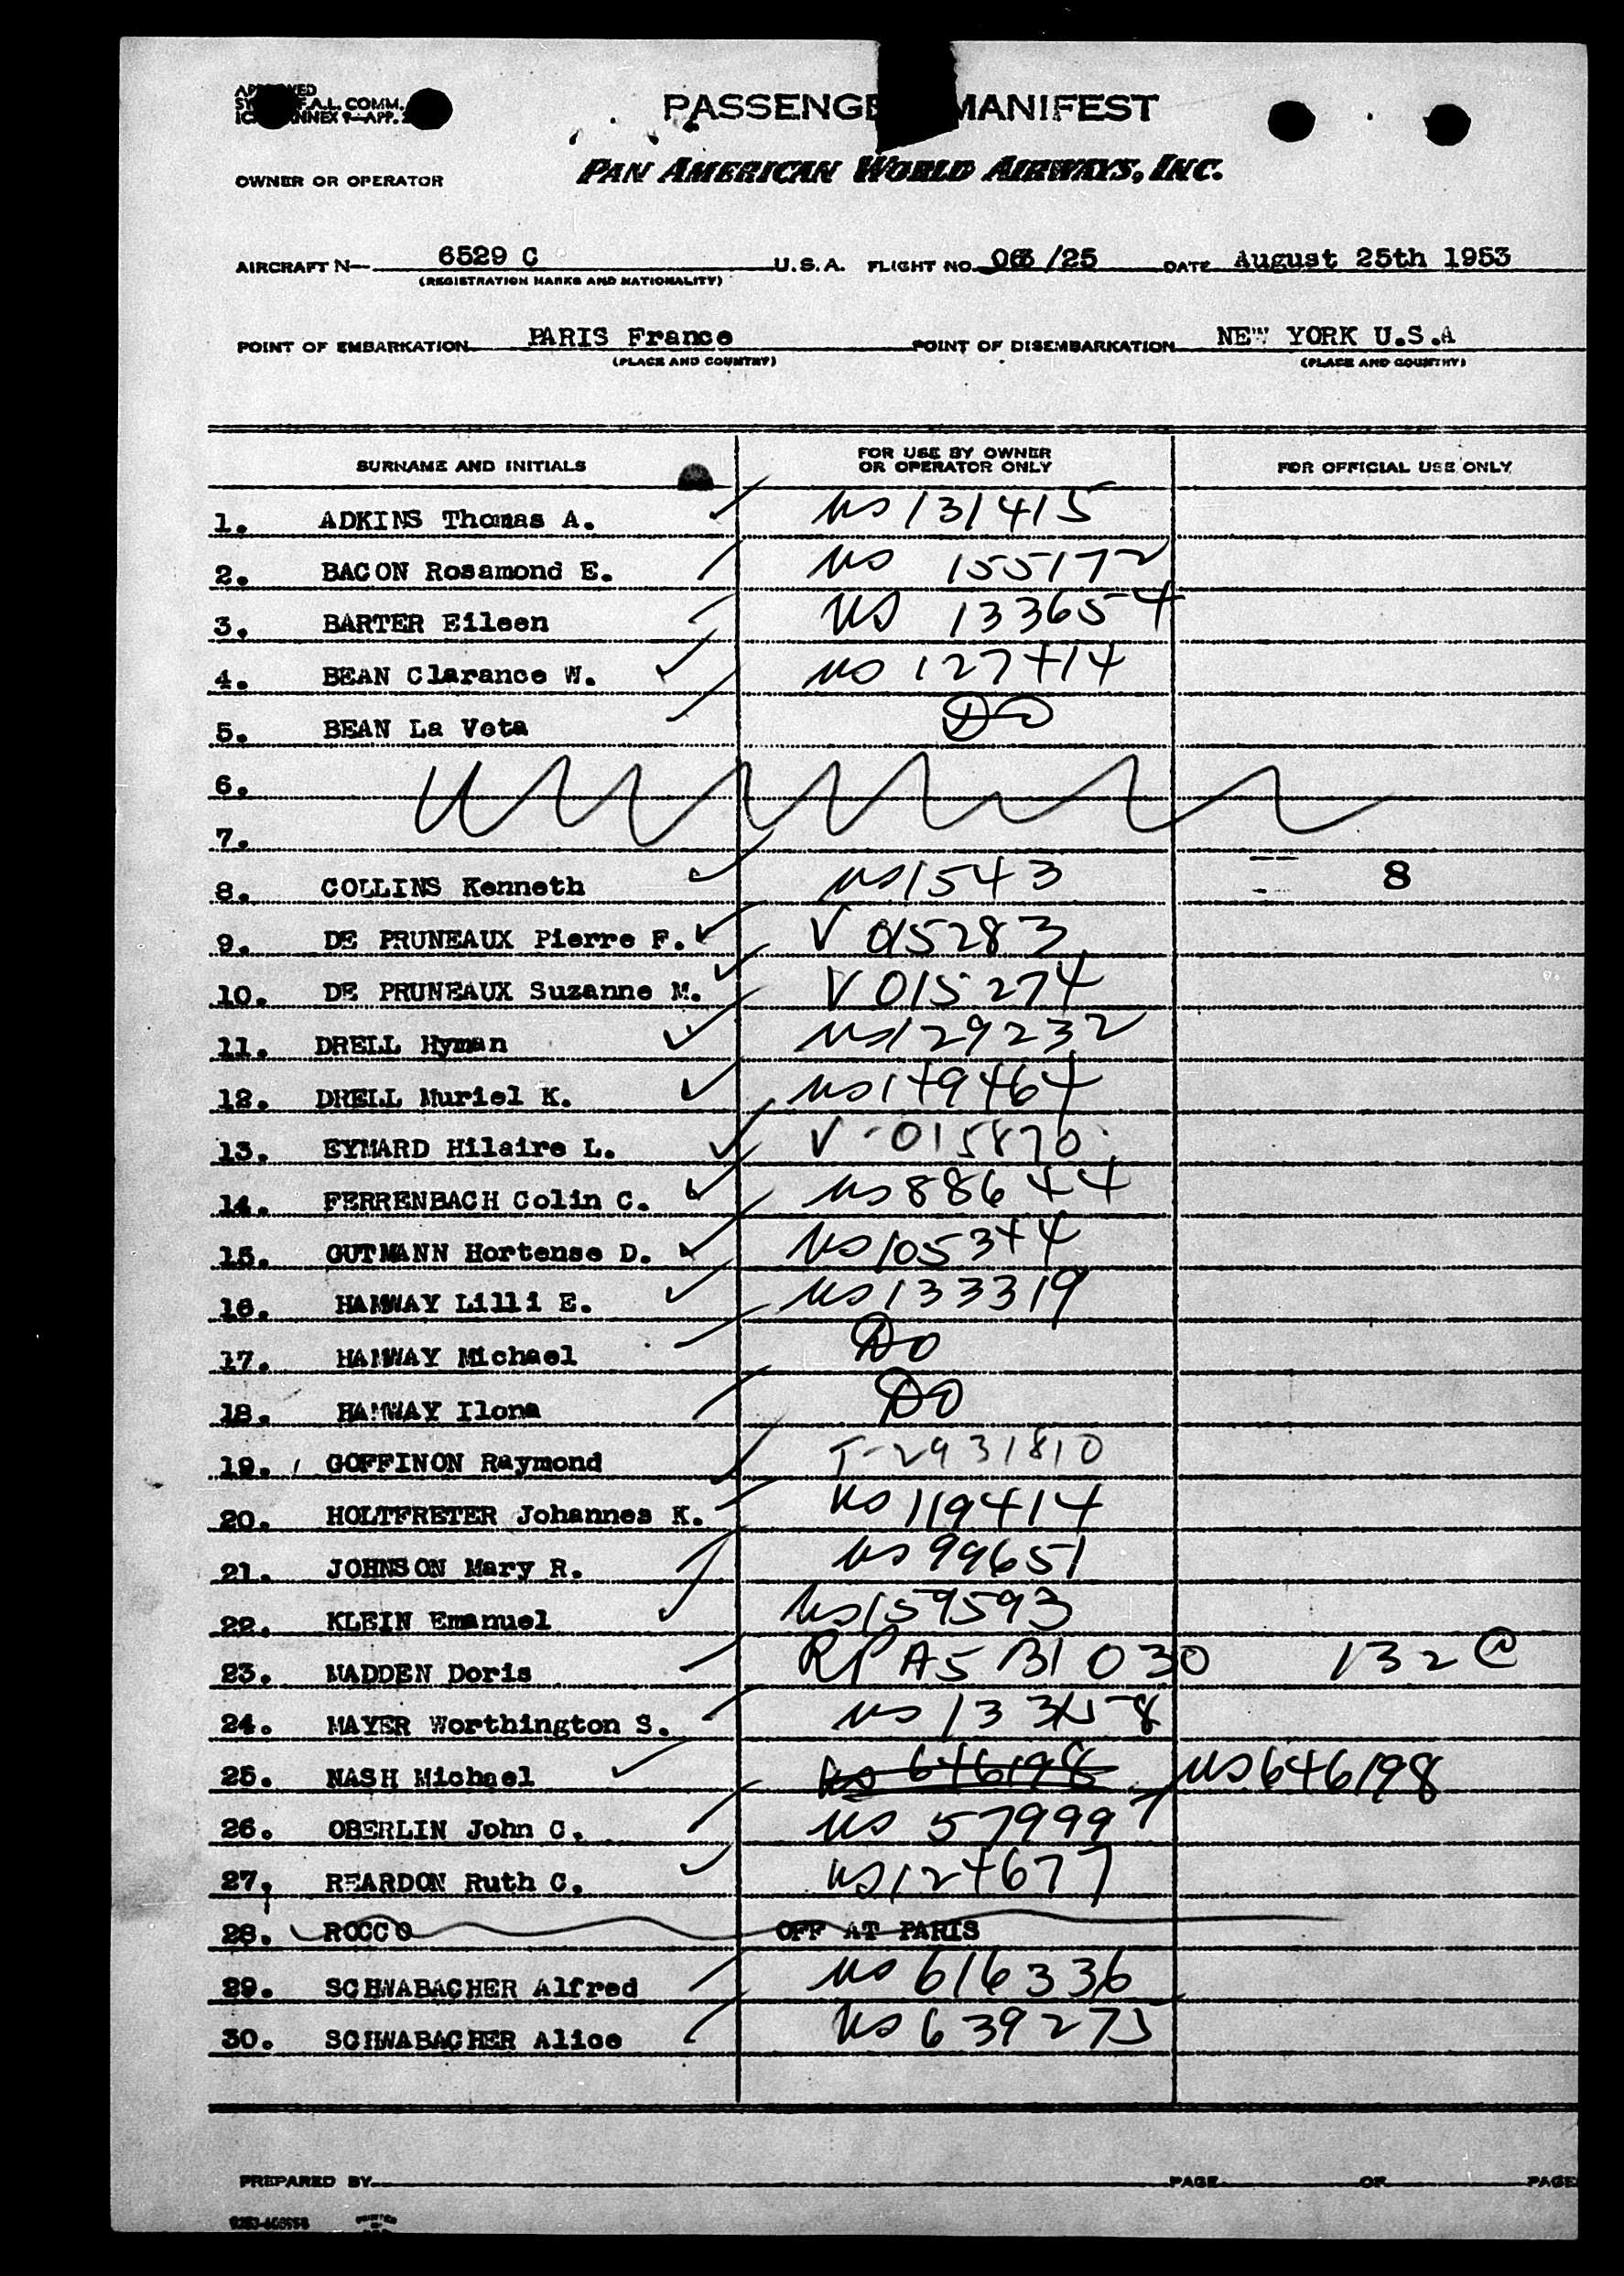 F.A.L. COMM.
ANNEX 9-APP.
PASSENGE MANIFEST
OWNER OR OPERATOR PAN AMERICAN WORLD AIRWAYS, INC.
AIRCRAFT N- 6529 C U.S.A. FLIGHT NO. /25 DATE August 25th 1953
(REGISTRATION MARKS AND NATIONALITY)
POINT OF EMBARKATION PARIS France POINT OF DISEMBARKATION NEW YORK U.S.A
(PLACE AND COUNTRY) (PLACE AND COUNTRY)
SURNAME AND INITIALS FOR USE BY OWNER OR OPERATOR ONLY FOR OFFICIAL USE ONLY
1. ADKINS Thomas A. US 131415
2. BACON Rosamond E. US 155172
3. BARTER Eileen US 133654
4. BEAN Clarance W. US 127414
5. BEAN La Veta DO
6.
7.
8. COLLINS Kenneth US 1543 8
9. DE PRUNEAUX Pierre F. V 015283
10. DE PRUNEAUX Suzanne M. V 015274
11. DRELL Hyman US 129232
12. DRELL Muriel K. US 149464
13. EYMARD Hilaire L. V-015870
14. FERRENBACH Colin C. US 88644
15. GUTMANN Hortense D. US 105344
16. HAMWAY Lilli E. US 133319
17. HAMWAY Michael DO
18. HAMWAY Ilona DO
19. GOFFINON Raymond T-2931810
20. HOLTFRETER Johannes K. US 119414
21. JOHNSON Mary R. US 99651
22. KLEIN Emanuel US 159593
23. MADDEN Doris RP A5 131 030 132 C
24. MAYER Worthington S. US
25. NASH Michael US 646198 US 646198
26. OBERLIN John C. US 579997
27. REARDON Ruth C. US 124677
28. ROCCO OFF AT PARIS
29. SCHWABACHER Alfred US 616336
30. SCHWABACHER Alice US 639275
PREPARED BY PAGE OF PAGE